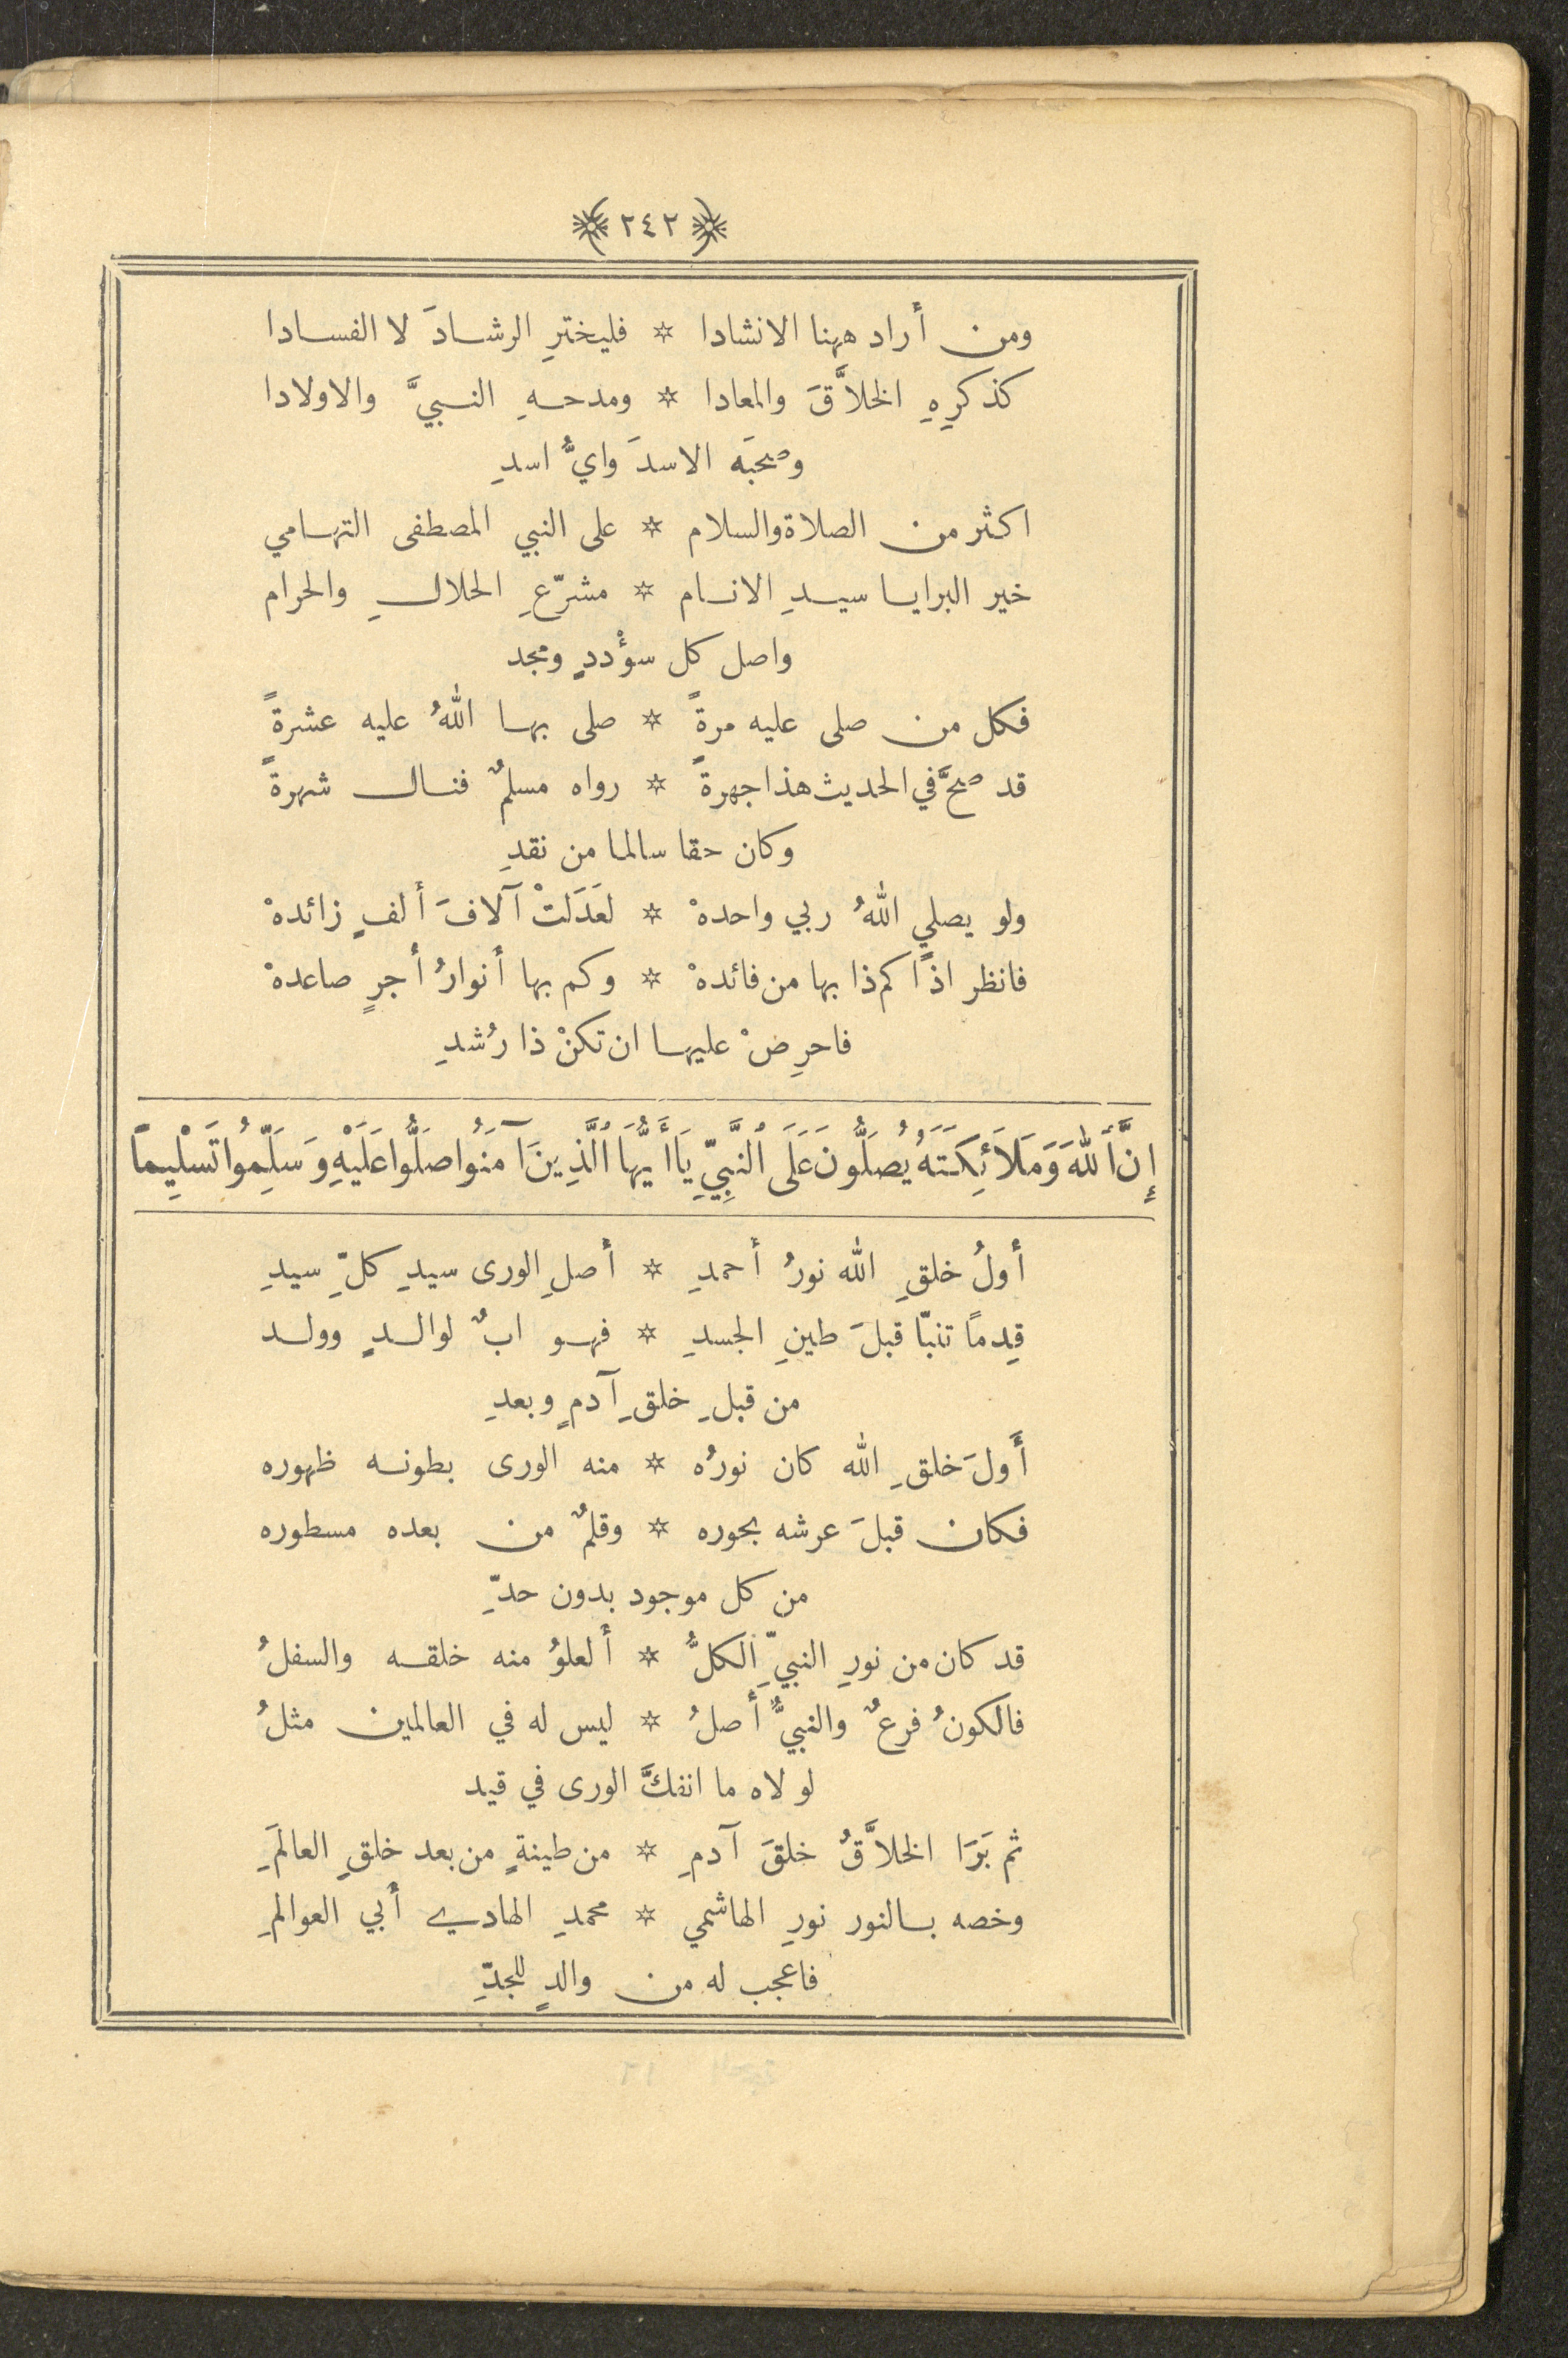 ﴿ ٢٤٢ ﴾
ومن أراد ههنا الانشادا * فليخترِ الرشادَ لا الفسادا
كذكرِهِ الخلاَّقَ والمعادا * ومدحهِ النبيَّ والاولادا
وصحبَه الاسدَ وايُّ اسدِ
اكثر من الصلاة والسلام * على النبي المصطفى التهامي
خير البرايا سيدِ الانام * مشرّعِ الحلالِ والحرام
واصل كل سؤْددٍ ومجد
فكل من صلى عليه مرةً * صلى بها اللهُ عليه عشرةً
قد صحَّ في الحديث هذا جهرةً * رواه مسلمٌ فنال شهرةً
وكان حقا سالما من نقدِ
ولو يصلي اللهُ ربي واحدهْ * لعَدَلتْ آلافَ ألفٍ زائدهْ
فانظر اذًا كم ذا بها من فائدهْ * وكم بها أنوارُ أجرٍ صاعدهْ
فاحرِصْ عليها ان تكنْ ذا رُشدِ
إِنَّ اَللّٰهَ وَمَلَائِكَتَهُ يُصَلُّونَ عَلَى اُلنَّبِيِّ يَا أَيُّهَا اُلَّذِينَ آمَنُوا صَلُّوا عَلَيْهِ وَسَلِّمُوا تَسْلِيمًا
أولُ خلقِ الله نورُ أحمدِ * أصلِ الورى سيدِ كلِّ سيدِ
قِدمًا تنبّا قبلَ طينِ الجسدِ * فهو ابٌ لوالدٍ وولد
من قبلِ خلقِ آدمٍ وبعدِ
أَولَ خلقِ الله كان نورُه * منه الورى بطونه ظهوره
فكان قبلَ عرشه بحوره * وقلمٌ من بعده مسطوره
من كل موجود بدون حدِّ
قد كان من نورِ النبيِّ اَلكلُّ * ألعلوُ منه خلقه والسفلُ
فالكونُ فرعٌ والنبيُّ أصلُ * ليس له في العالمين مثلُ
لولاه ما انفكَّ الورى في قيد
ثم بَرَا الخلاَّقُ خلقَ آدمِ * من طينةٍ من بعد خلقِ العالَمِ
وخصه بالنور نورِ الهاشمي * محمدِ الهادي أبي العوالمِ
فاعجب له من والدٍ للجدِّ